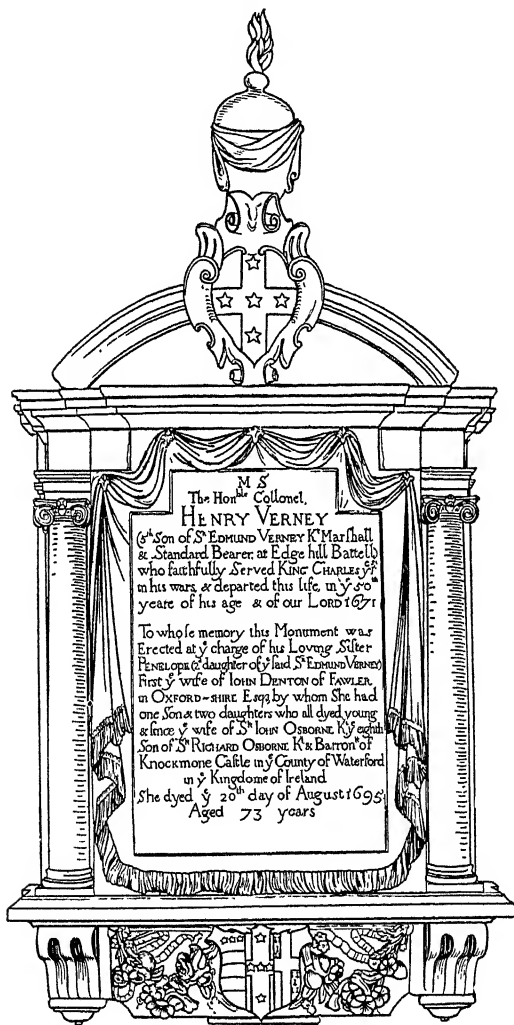 M S
The Honble Collonel,
HENRY VERNEY
(5th Son of Sr EDMUND VERNEY Kt Marshall
& Standard Bearer, at Edge hill Battell)
who faithfully Served KING CHARLES ye jst
in his wars, & departed this life, in ye 50th
yeare of his age & of our LORD 1671
To whose memory this Monument was
Erected at ye charge of his Loving Sister
PENELOPE (2d daughter of ye said Sr EDMUND VERNEY)
First ye wife of IOHN DENTON of FAWLER
in OXFORD-SHIRE Esqr by whom She had
one Son & two daughters who all dyed young
& since ye wife of Sr IOHN OSBORNE Kt ye eighth
Son of Sr RICHARD OSBORNE Kt & Barront of
KNOCKMONE Castle in ye County of Waterford
in ye Kingdome of Ireland
She dyed ye 20th day of August 1695
Aged 73 years